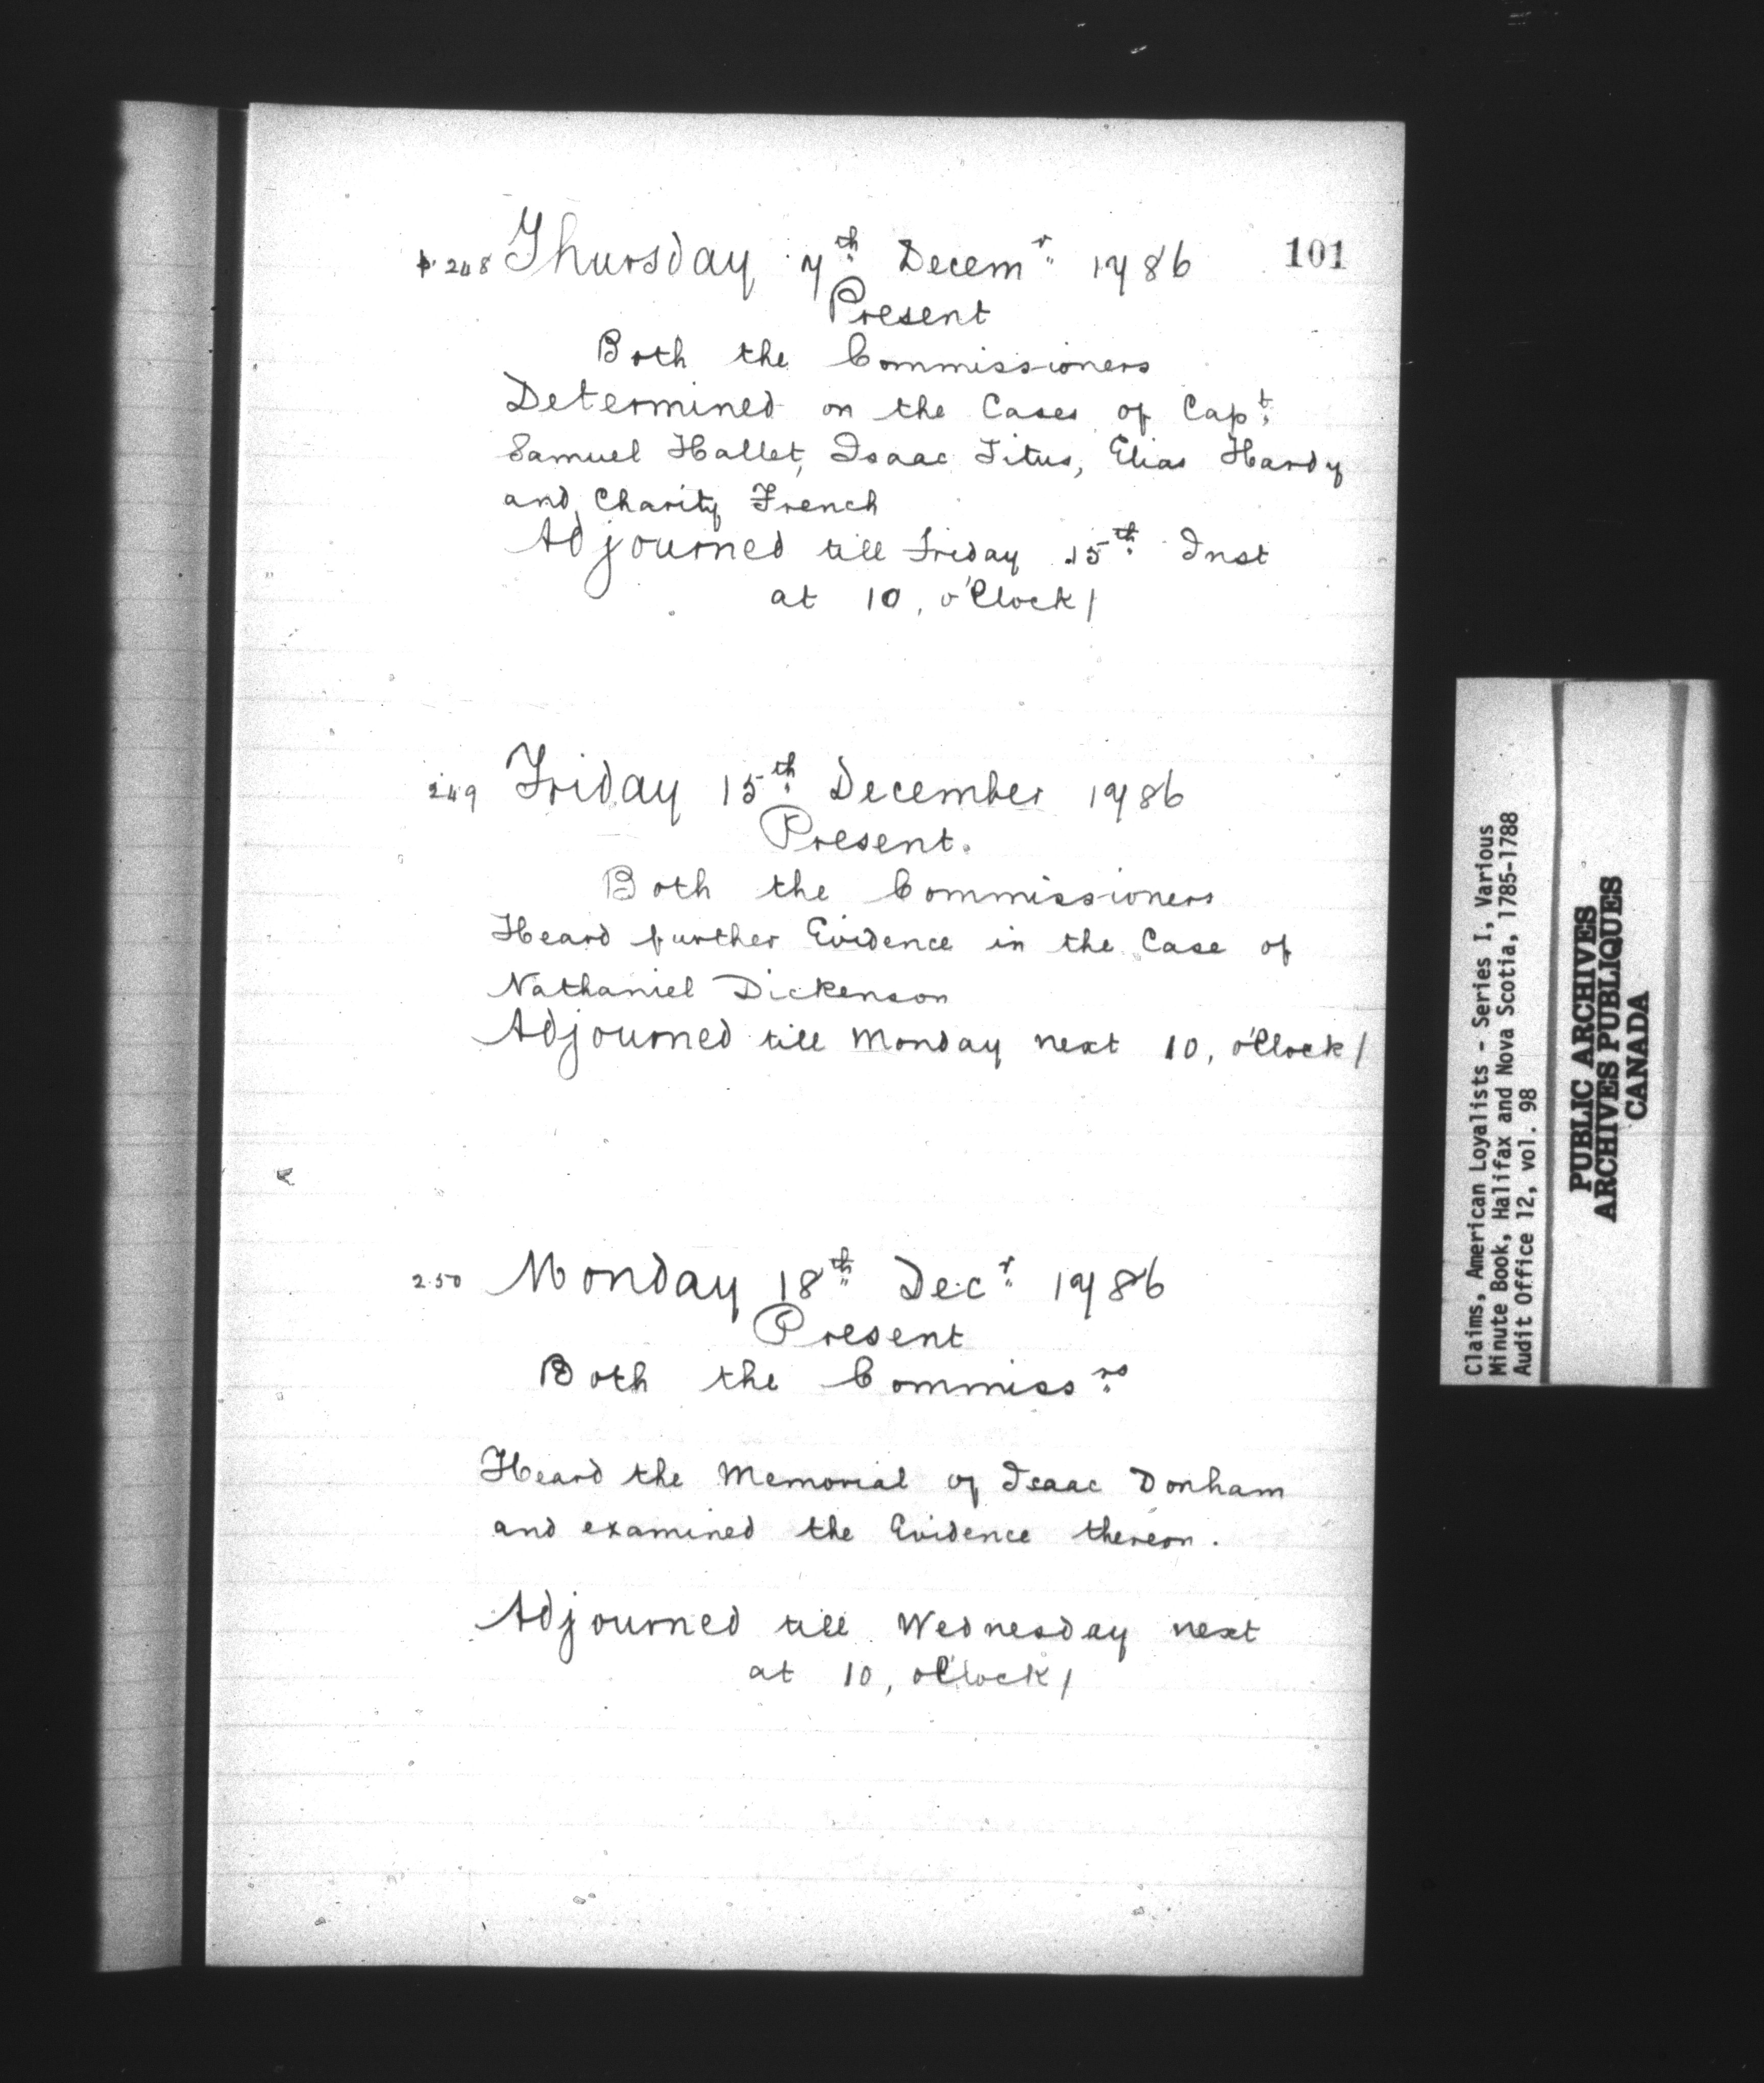 101
p. 248 Thursday 7th Decemr 1786
Present
Both the Commissioners
Determined on the Cases of Capt
Samuel Hallet, Isaac Titus, Elias Hardy
and Charity French
Adjourned till Friday 15th Inst
at 10, o'Clock/
249 Friday 15th December 1786
Present.
Both the Commissioners
Heard further Evidence in the Case of
Nathaniel Dickenson
Adjourned till Monday next 10, o'Clock/
250 Monday 18th Decr 1786
Present
Both the Commissrs
Heard the Memorial of Isaac Donham
and examined the Evidence thereon.
Adjourned till Wednesday next
at 10, o'Clock/
Claims, American Loyalists - Series I, Various
Minute Book, Halifax and Nova Scotia, 1785-1788
Audit Office 12, vol. 98
PUBLIC ARCHIVES
ARCHIVES PUBLIQUES
CANADA